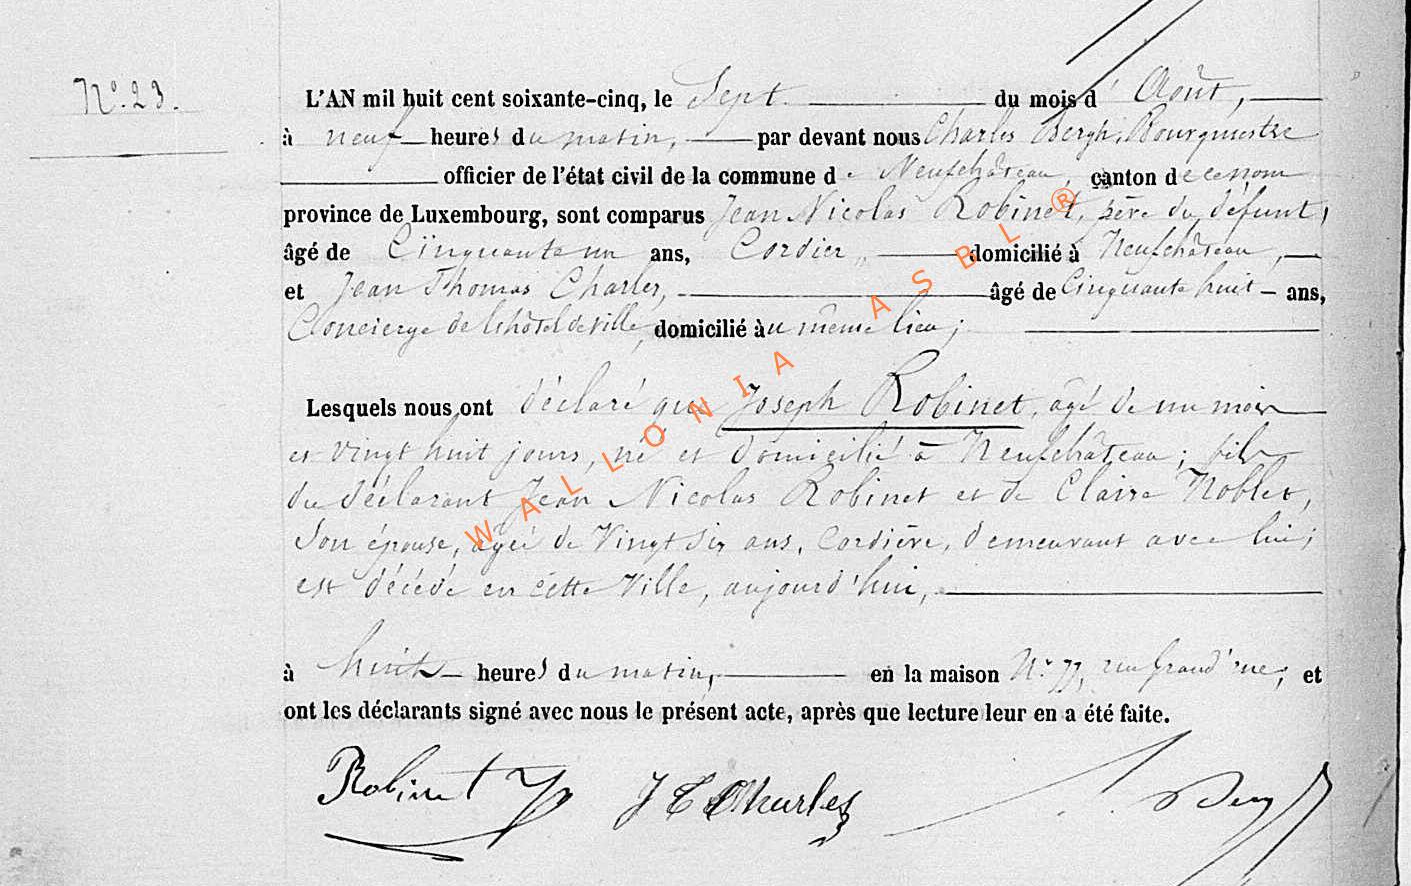 N° 23.
L'AN mil huit cent soixante-cinq, le Sept du mois d' Août,
à neuf heures du matin, par devant nous Charles Bergh, Bourgmestre
officier de l'état civil de la commune de Neufchâteau, canton de ce nom
province de Luxembourg, sont comparus Jean Nicolas Robinet, père du défunt,
âgé de Cinquante un ans, Cordier, domicilié à Neufchâteau,
et Jean Thomas Charles, âgé de Cinquante huit ans,
Concierge de l'hôtel de ville, domicilié au même lieu;
Lesquels nous ont déclaré que Joseph Robinet, âgé de un mois
et vingt huit jours, né et domicilié à Neufchâteau; fils
du déclarant Jean Nicolas Robinet et de Claire Noblet,
Son épouse, âgée de Vingt six ans, Cordière, demeurant avec lui;
est décédé en cette Ville, aujourd'hui,
à huit heures du matin, en la maison N° 77, rue Grand'rue; et
ont les déclarants signé avec nous le présent acte, après que lecture leur en a été faite.
Robinet J T Charles
WALLONIA ASBL ®